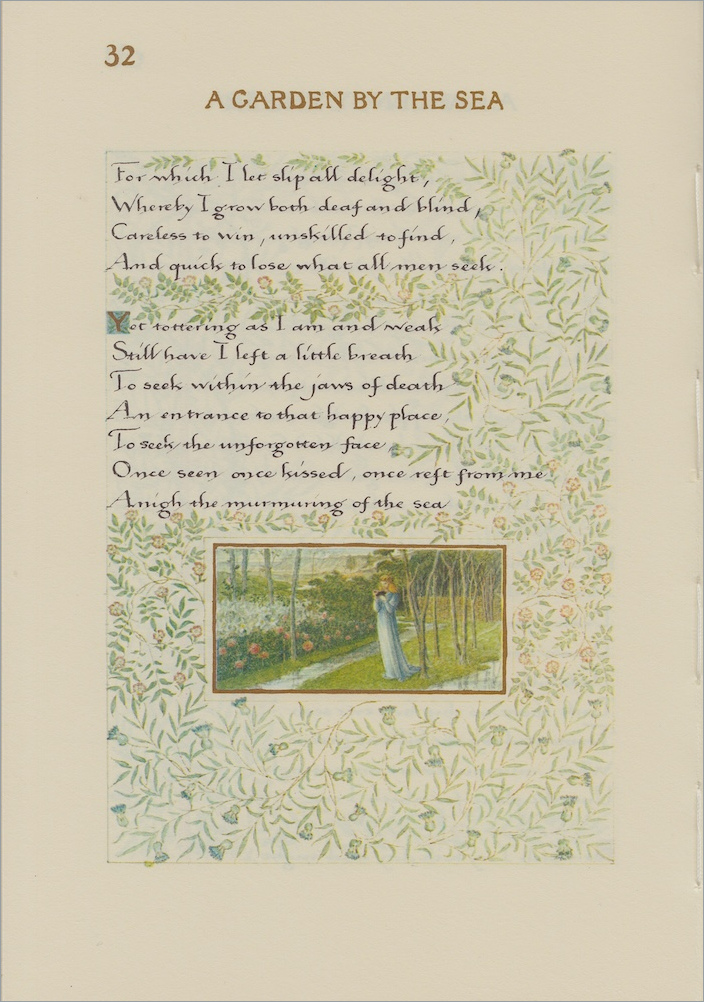 32
A GARDEN BY THE SEA
For which I let slip all delight,
Whereby I grow both deaf and blind,
Careless to win, unskilled to find,
And quick to lose what all men seek.
Yet tottering as I am and weak
Still have I left a little breath
To seek within the jaws of death
An entrance to that happy place,
To seek the unforgotten face,
Once seen once kissed, once reft from me
Anigh the murmuring of the sea